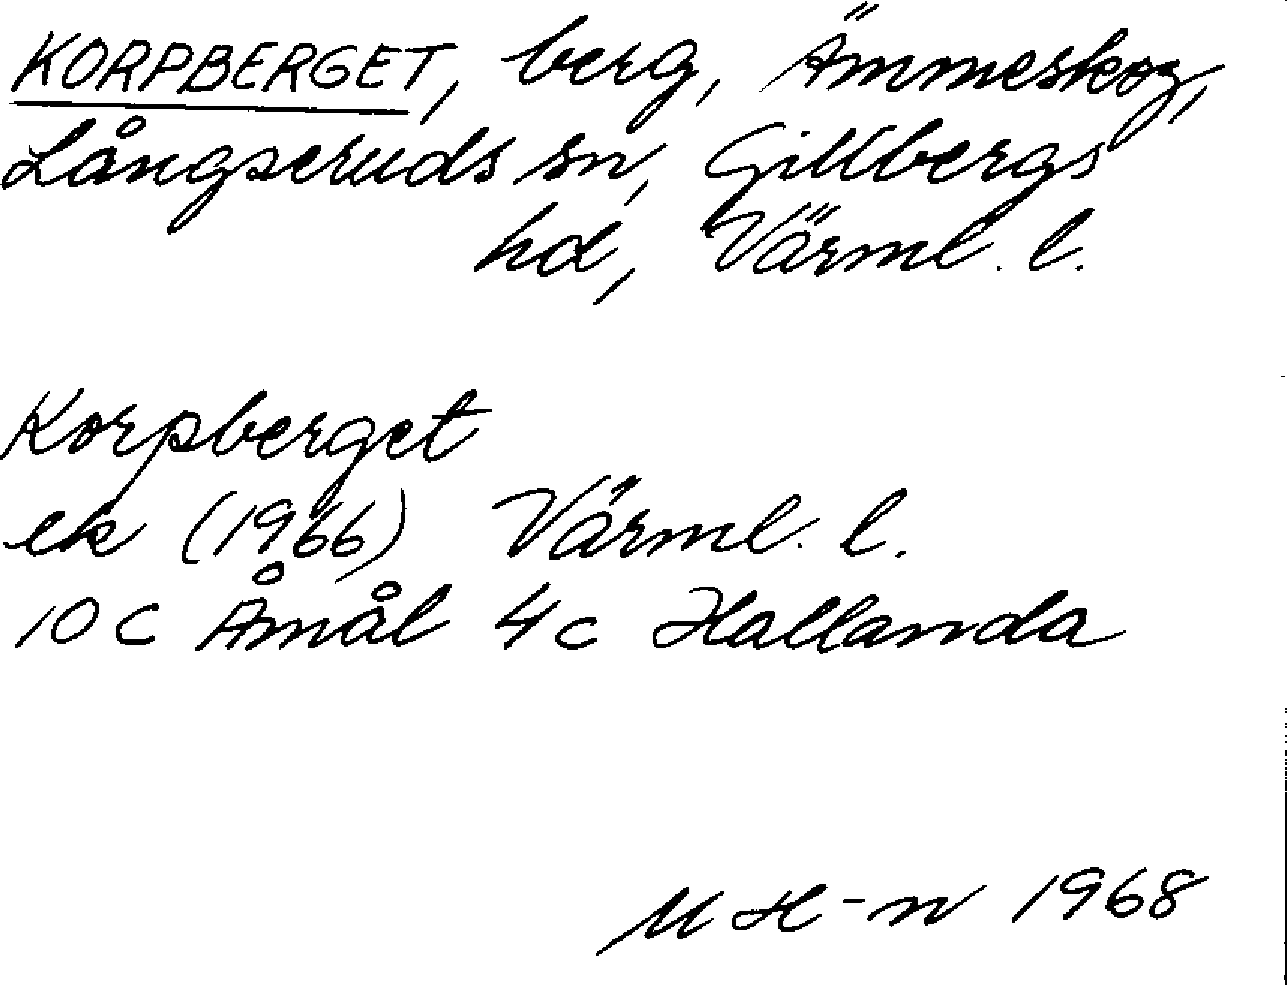 KORPBERGET, berg, Ämmeskog,
Långseruds sn, Gillbergs
hd, Värml. l.
Korpberget
ek (1966) Värml. l.
10 C Åmål 4c Hallanda
M H-n 1968